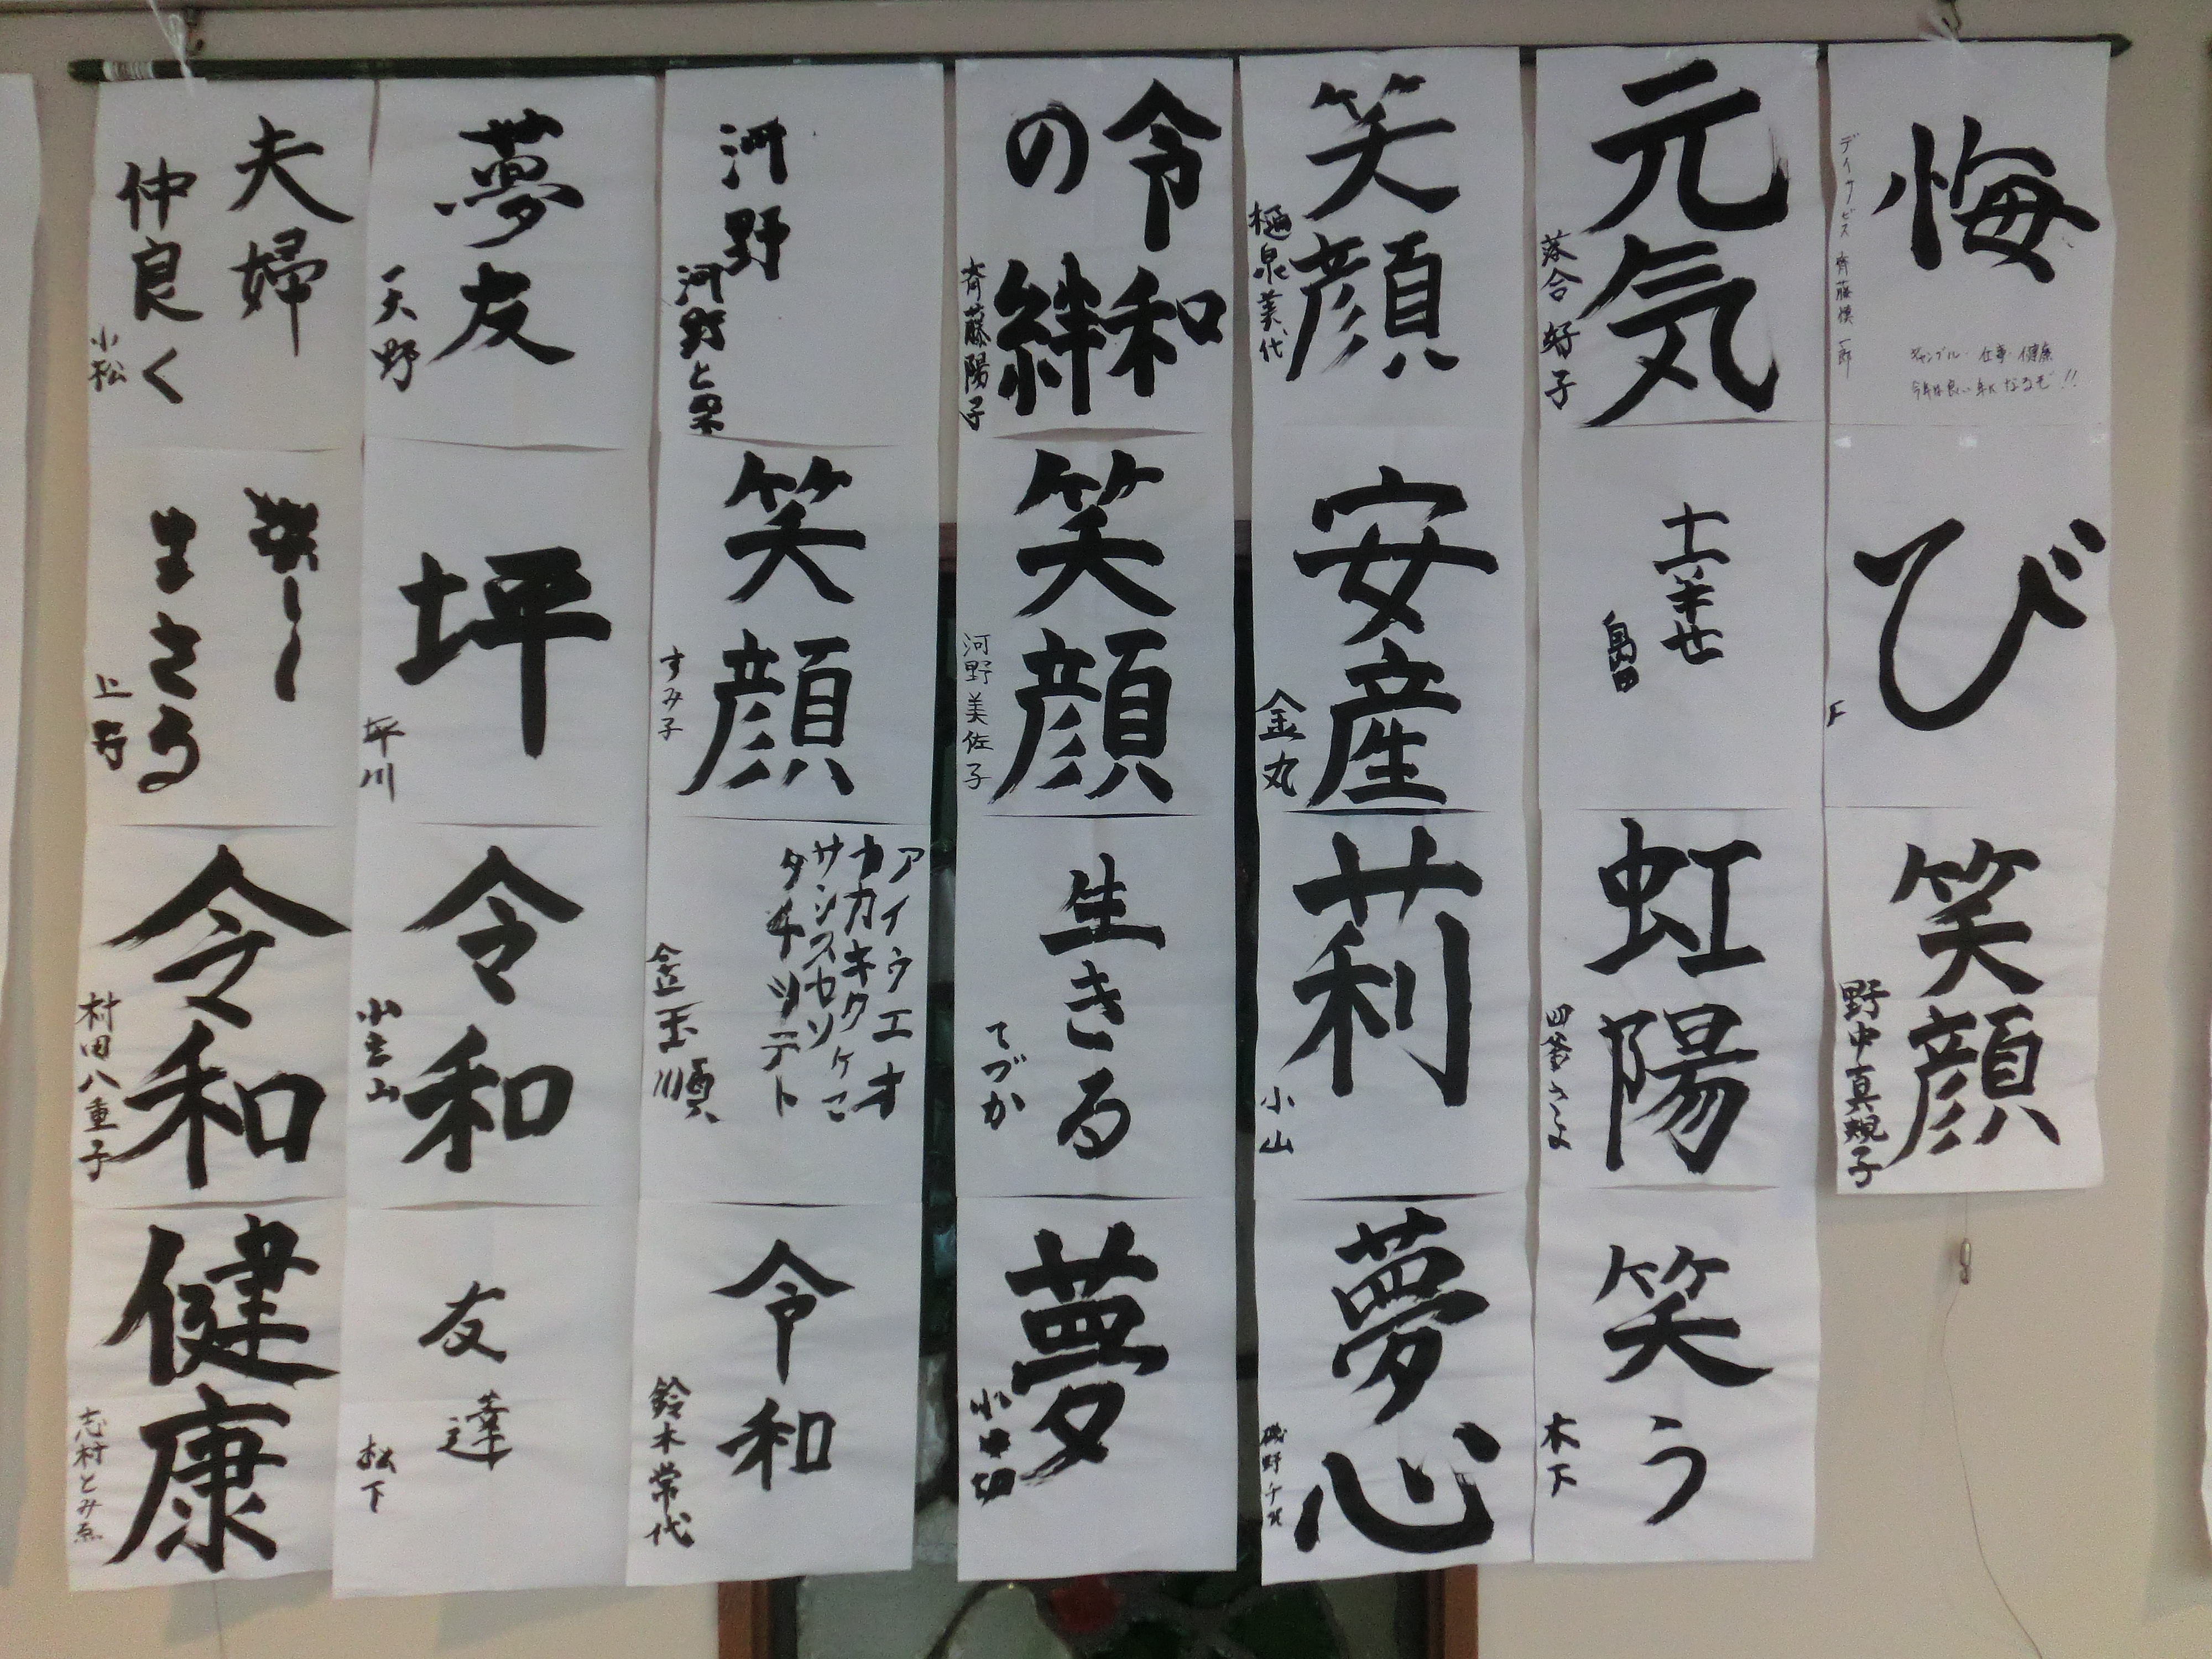 悔
デイサービス 齊藤
ギャンブル・仕事・健康
今年は良い年になるぞ!!
び
笑顔
野中真規子
元気
落合好子
幸せ
島田
虹陽
笑う
木下
笑顔
樋泉美代
安産
金丸
莉
小山
夢心
磯野
令和
の絆
斉藤陽子
笑顔
河野美佐子
生きる
てづか
夢
河野
河野と
笑顔
すみ子
アイウエオ
カカキクケコ
サシスセソ
タチツテト
令和
鈴木常代
夢友
天野
坪
坪川
令和
友達
松下
夫婦
仲良く
小松
楽しく
生きる
上野
令和
村田八重子
健康
志村とみゑ